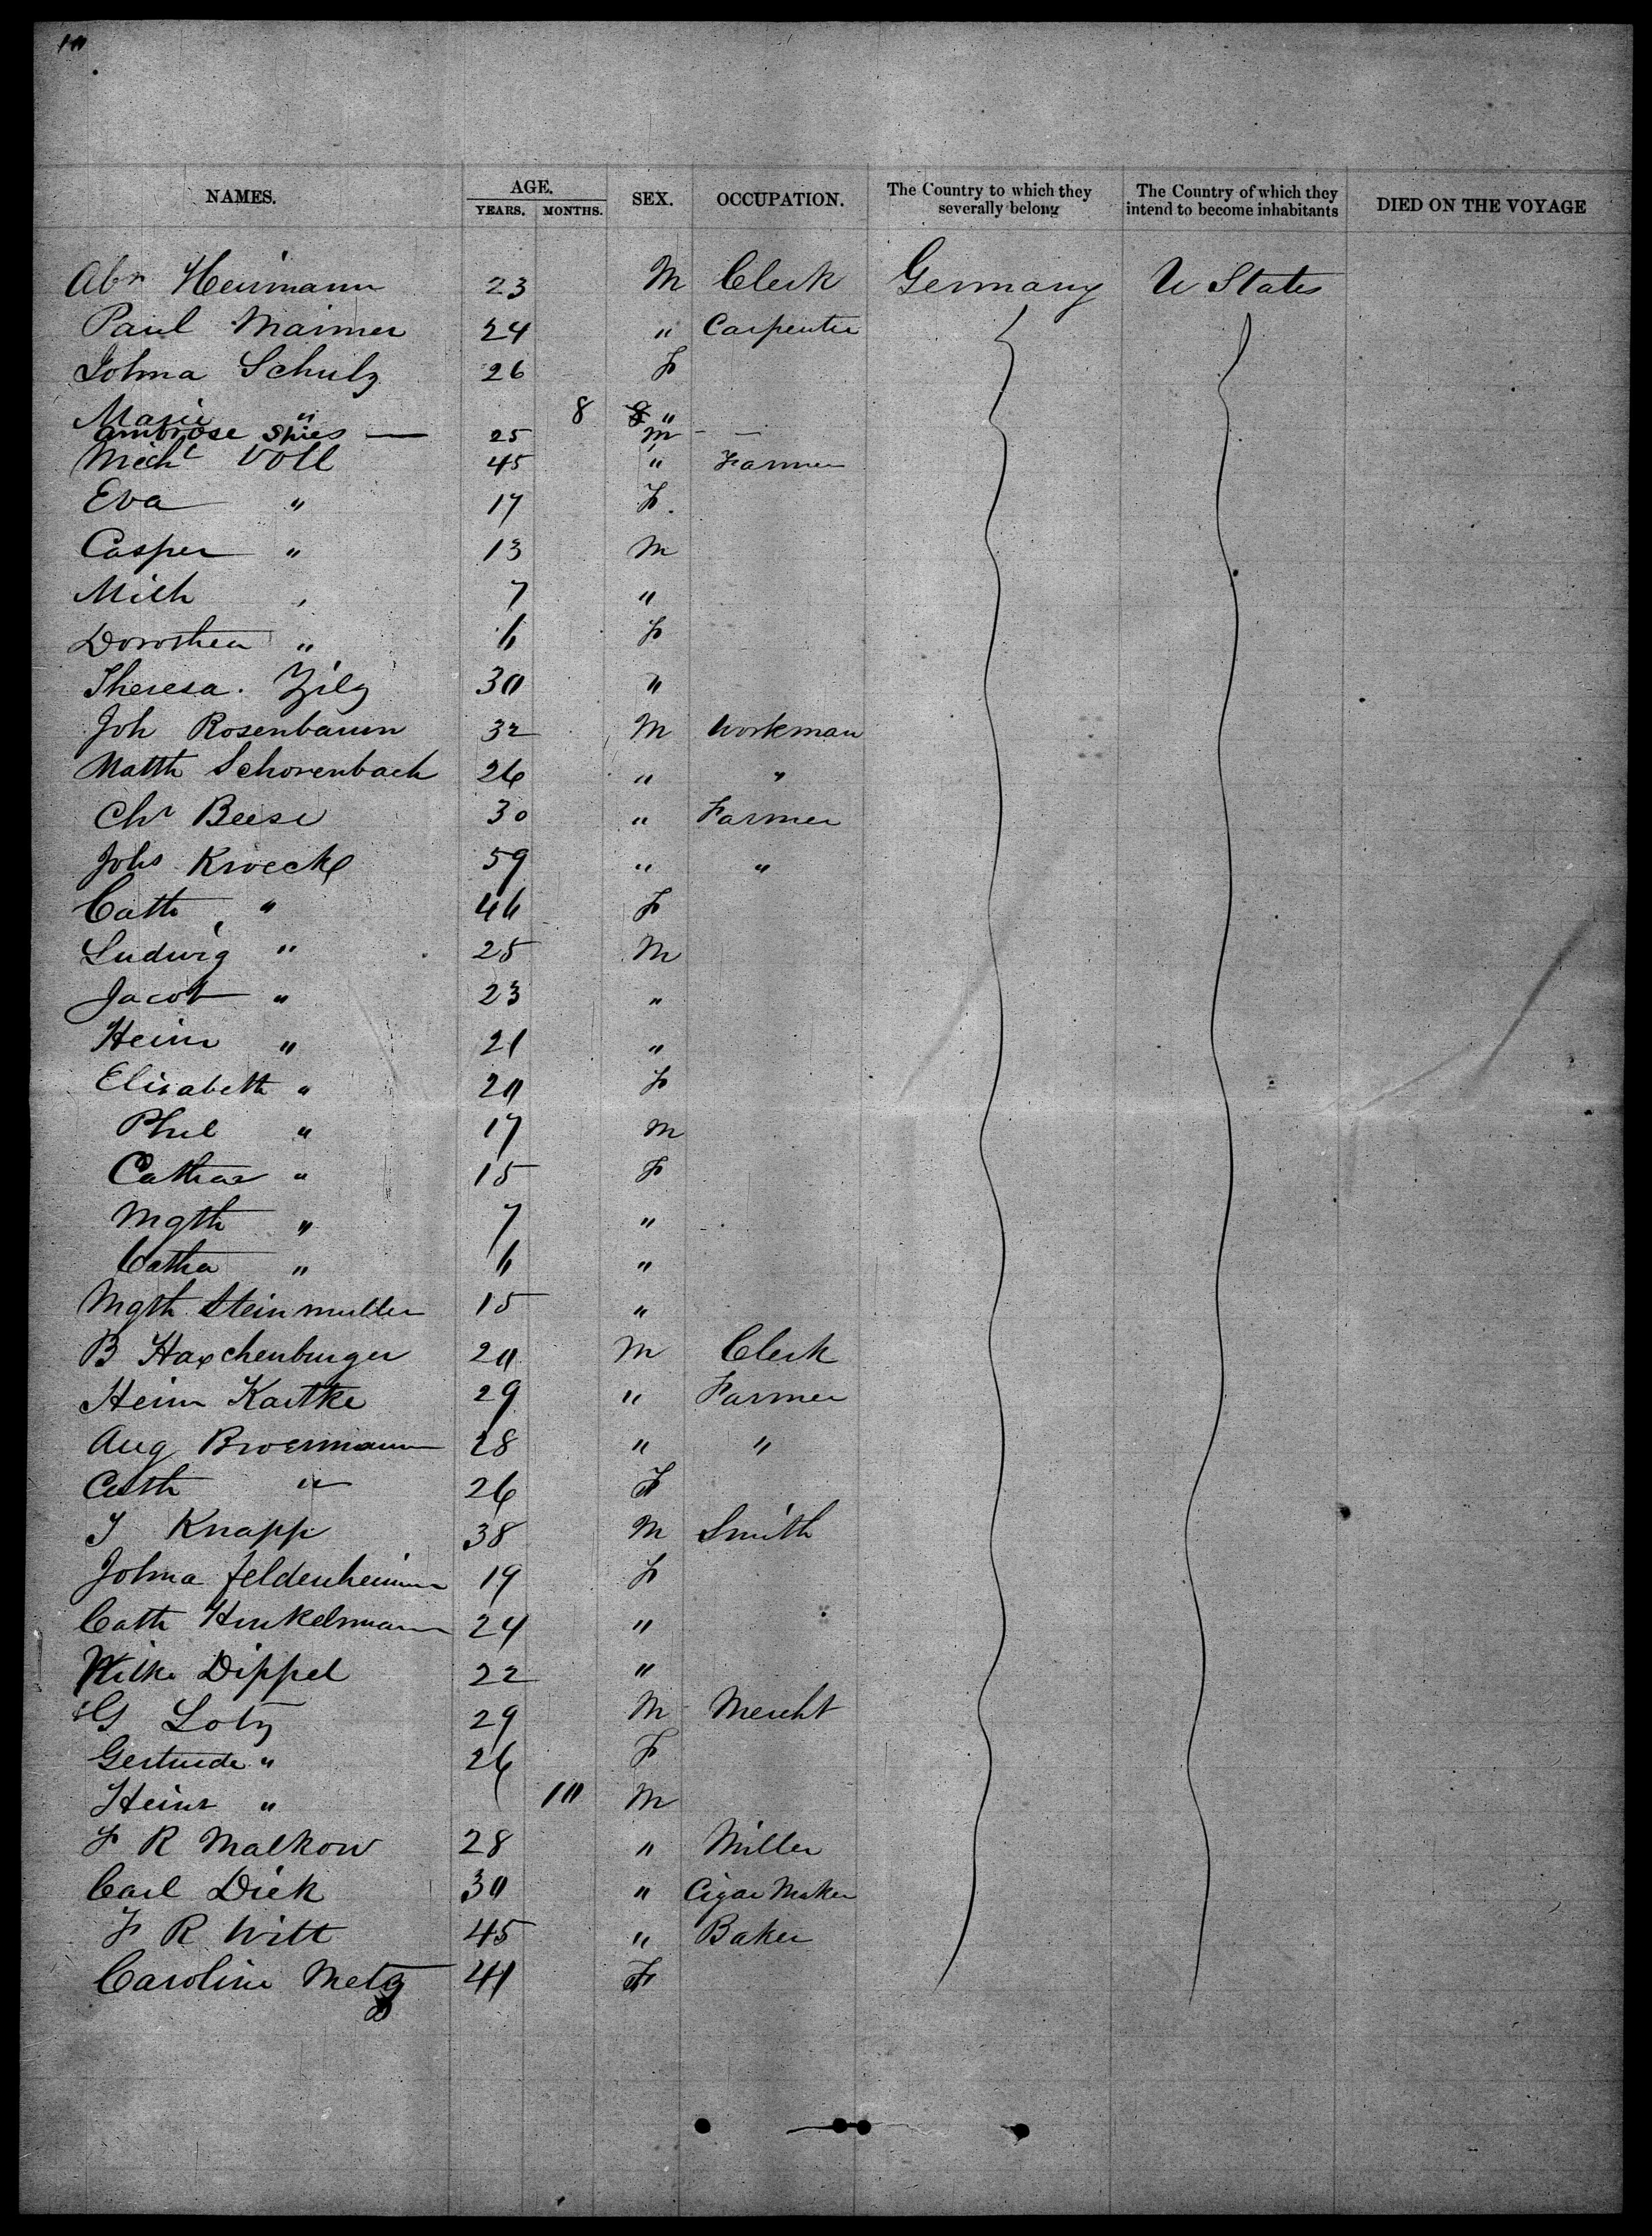 10
NAMES. AGE. YEARS. MONTHS. SEX. OCCUPATION. The Country to which they severally belong The Country of which they intend to become inhabitants DIED ON THE VOYAGE
Abr Heimann 23 M Clerk Germany U States
Paul Maimer 24 " Carpenter
Johna Schulz 26 F
Marie " 8 "
Ambrose Spies — 25 M — —
Michl Voll 45 " Farmer
Eva " 17 F.
Casper " 13 M
Mich " 7 "
Dorothea " 6 F
Theresa. Zilg 30 "
Joh Rosenbaum 32 M Workman
Matth Schorenbach 26 " "
Chr Beese 30 " Farmer
Johs Kroeck 59 " "
Cath " 46 F
Ludwig " 25 M
Jacob " 23 "
Heinr " 21 "
Elisabeth " 20 F
Phil " 17 M
Cathar " 15 F
Mgth " 7 "
Catha " 6 "
Mgth Steinmuller 15 "
B Haxchenburger 20 M Clerk
Heinr Kartke 29 " Farmer
Aug Broermann 28 " "
Cath " 26 F
J Knapp 38 M Smith
Johna Feldenheimer 19 F
Cath Hinkelmann 24 "
Wilhe Dippel 22 "
G Lotz 29 M Mercht
Gertrude " 26 F
Heinr " 10 M
F R Malkow 28 " Miller
Carl Dick 30 " Cigar Maker
F R Witt 45 " Baker
Caroline Metz 41 F